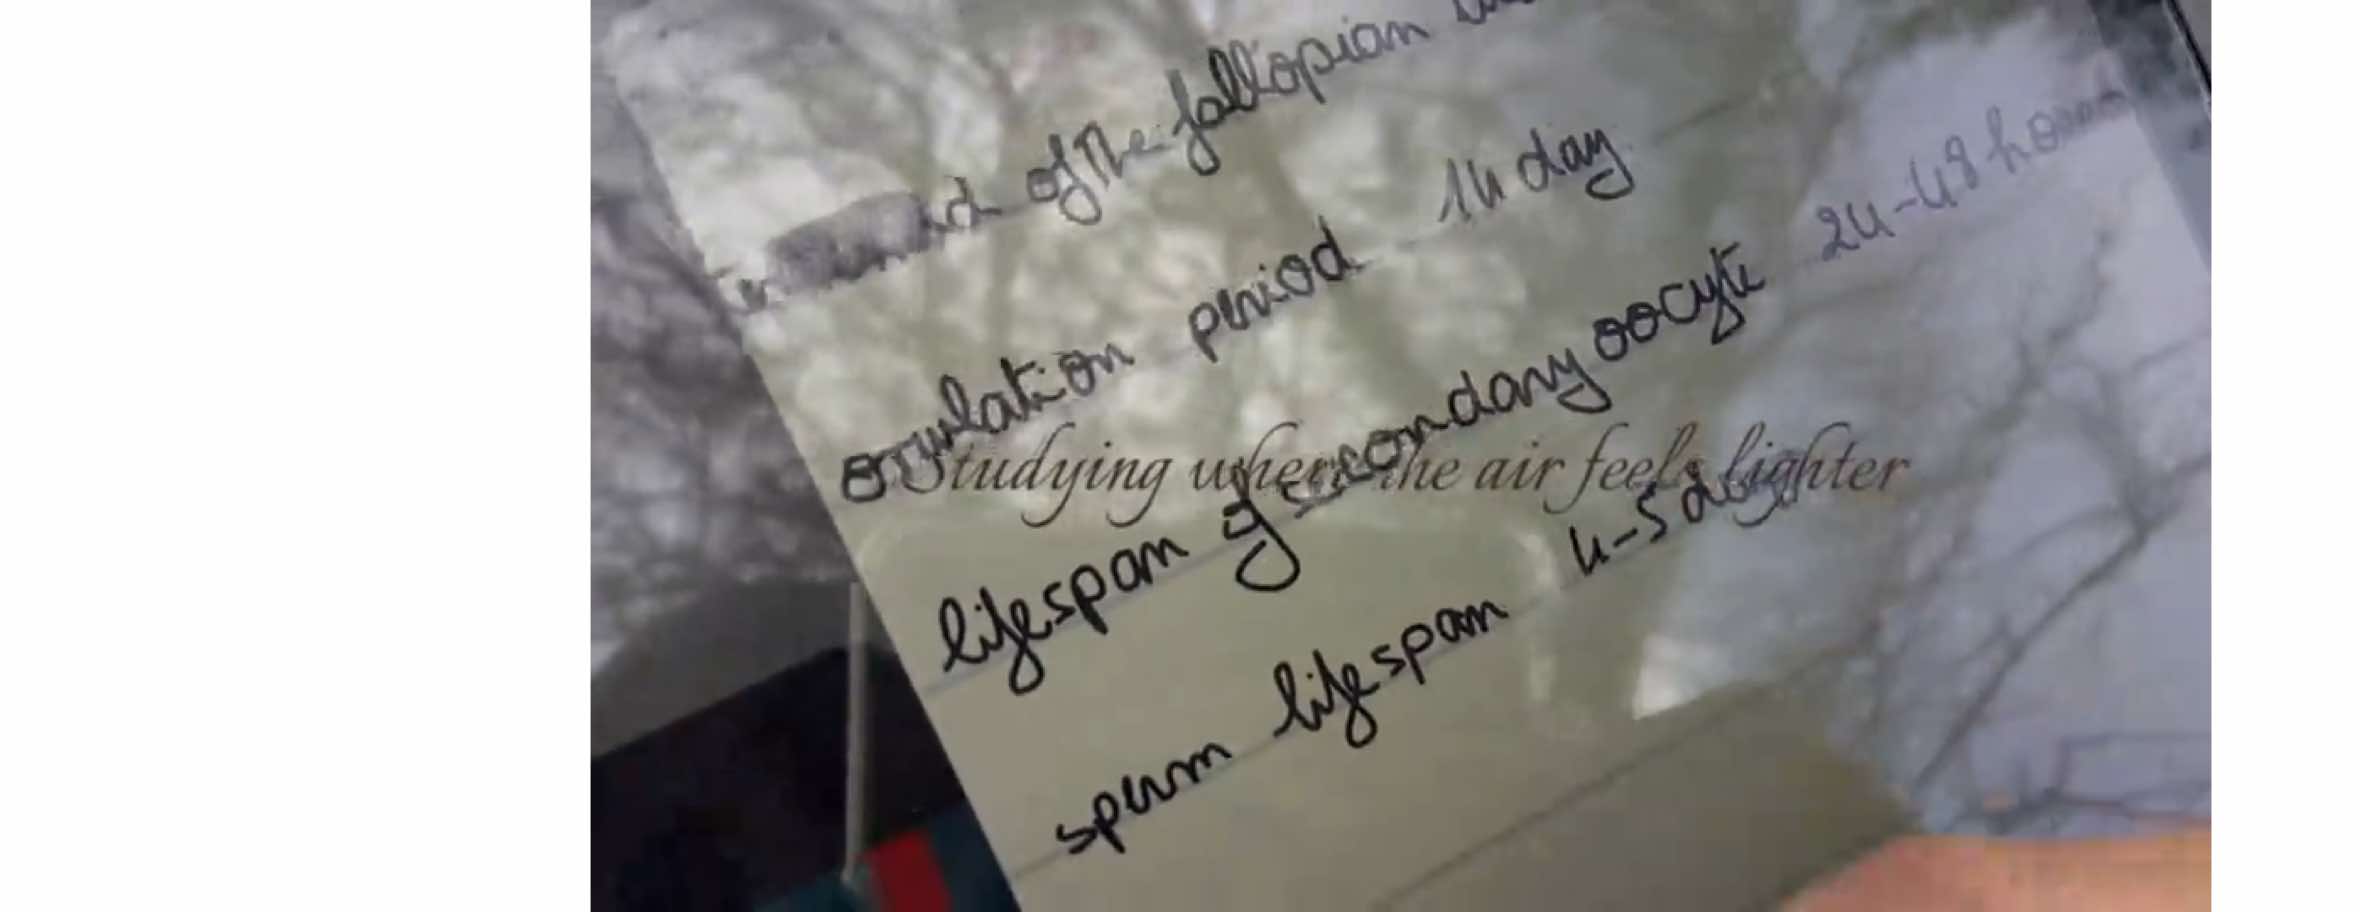 of the fallopian
ovulation period 14 day
Studying where the air feels lighter
lifespan of secondary oocyte 24-48 hours
sperm lifespan 4-5 days